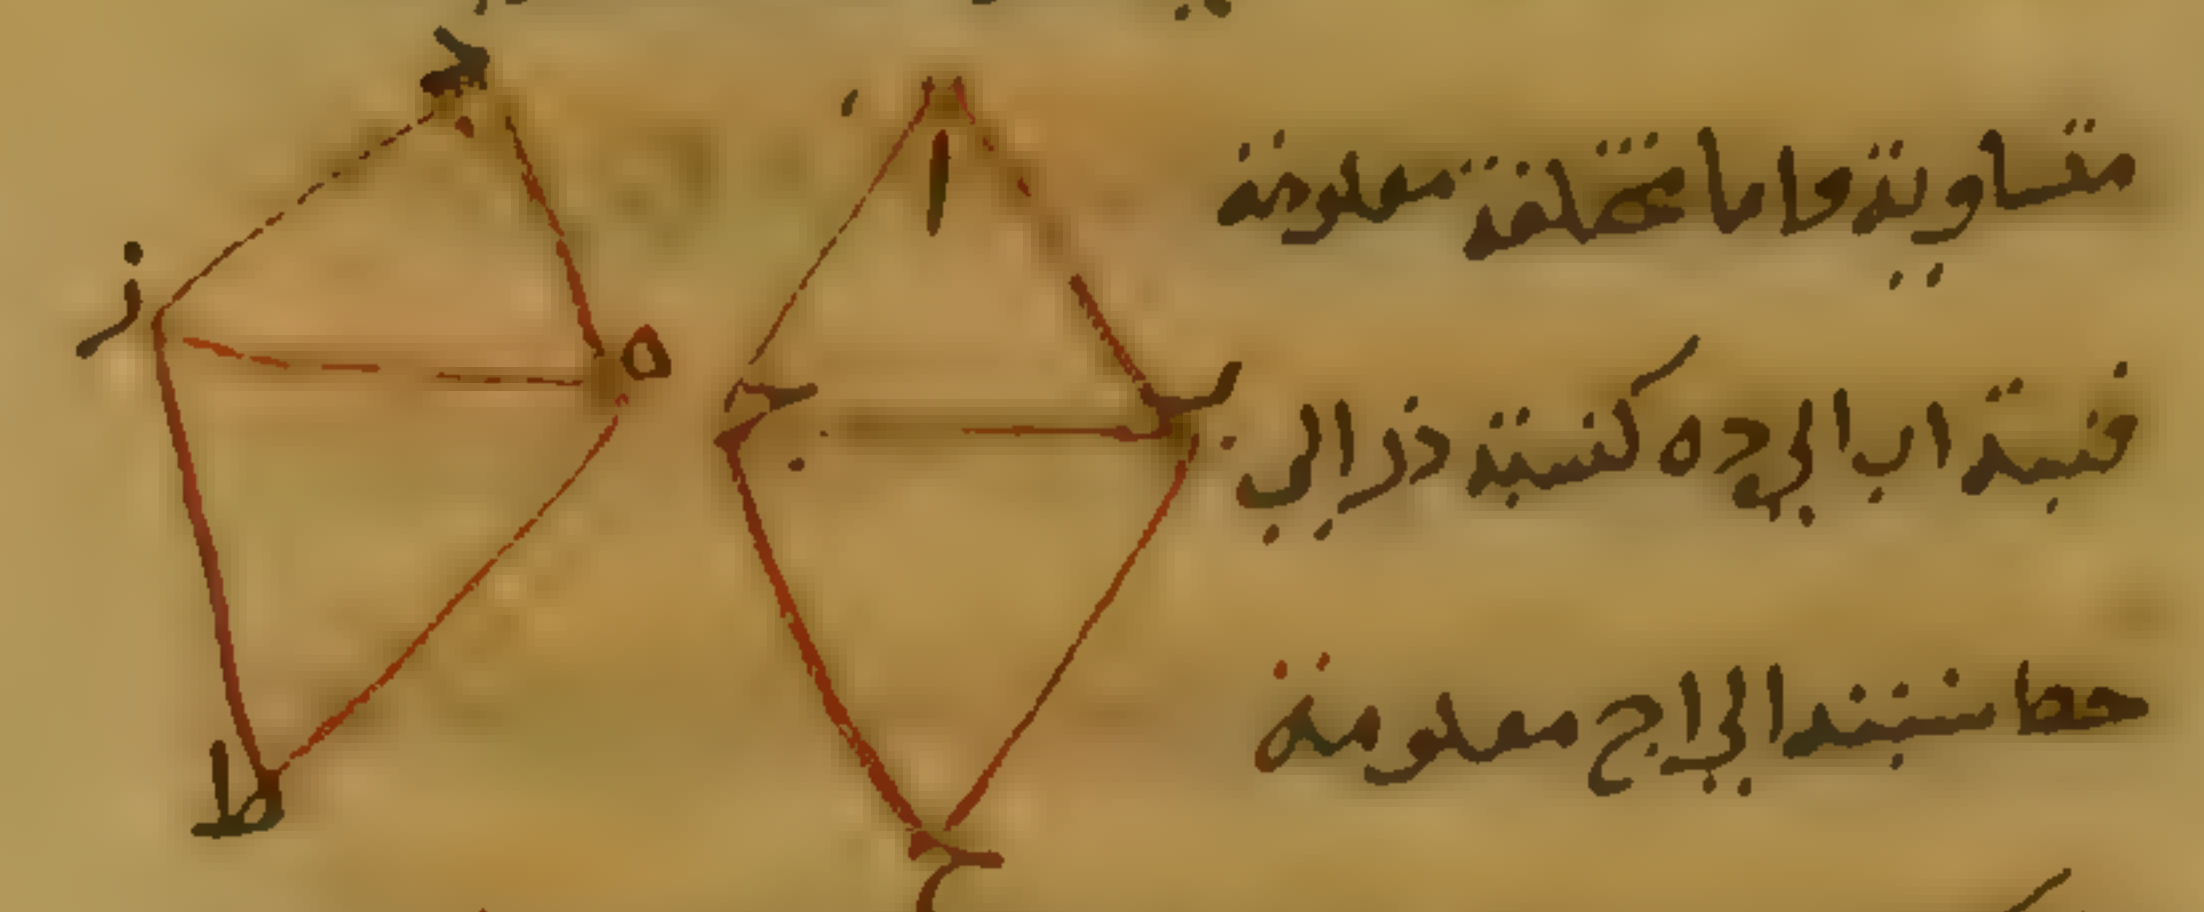 متساوية واما مختلفة معلومة
فنسبة اب الى ده كنسبة دز الى
حط فنسبة ا الى اج معلومة
د
ا
ز
ه
ج
ب
ط
ح